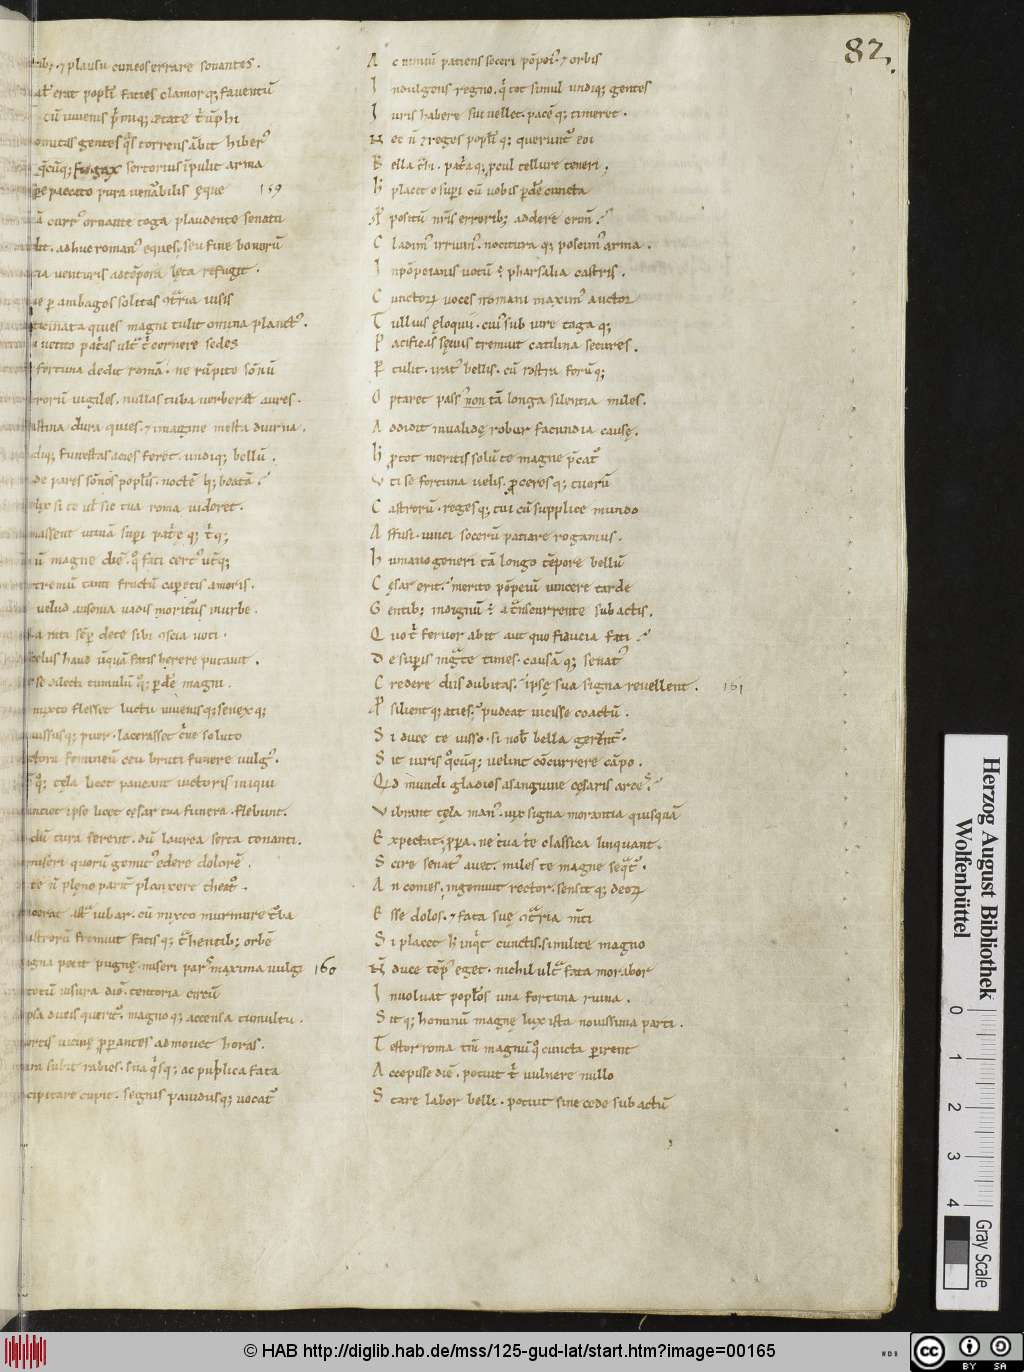 82.
plausu cuneos errare sonantes.
erat popłi facies clamorq; fauentū
cū iuuenis p̄muq; ętate t̓ūphi
gentes q̄s torrens ābit hiber᾽
fugax sertorius īpulit arma
pace pura uenābilis ęque 159
curr᾽ ornante toga plaudente senatu
adhuc roman᾽ eques, seu fine bonorū
uenturis adtēpora lęta refugit.
p ambages solitas ꝯt̄ria uisis
uaticinata quies magni tulit omina planct᾽.
uetito pat̓as ult̄ t̓ cernere sedes
fortuna dedit romā. ne rūpite sōnū
uigiles. nullas tuba uerberet aures.
dura quies. ⁊ imagine mesta diurna.
funestas acies feret. undiq; bellū.
pares sōnos popłis. noctē q; beatā?
si te uł sic tua roma uideret.
utinā supi pat̓ę q; t̓q;
ū magne diē. q̊ fati cert᾽ ut̓q;
extremū tanti fructū caperetis amoris.
uelud ausonia uadis moritur᾽ inurbe.
sēp de te sibi ꝯscia uoti.
haud ūquā fatis herere putauit.
se dilecti tumulū q̊; pde magni.
mixto flesset luctu iuuenisq; senexq;
iniussusq; puer. lacerasset c̓ne soluto
femineū ceu bruti funere uulg᾽.
q̊; tęla licet paueant uictoris iniqui
ipse licet cęsar tua funera. flebunt.
dū tura ferent. dū laurea serta tonanti.
miseri quorū gemit᾽ edere dolorē.
te n̄ plęno parit᾽ planxere theat̊.
iubar. cū mixto murmure t̓ba
castrorū fremuit fatisq; t̓hentib; orbē
poscit pugnę. miseri pars maxima uulgi 160
totū uisura diē. tentoria circū
ipsa ducis querit᾽. magnoq; accensa tumultu.
mortis uicinę pperantes admouet horas.
subit rabies. sua q̓sq; ac publica fata
pcipitare cupit. segnis pauidusq; uocat᾽
A c nimiū patiens soceri pōpei᾽ ⁊ orbis
I ndulgens regno. q̓ tot simul undiq; gentes
I uris habere sui uellet. pacē q; timeret.
N ec n̄ ⁊ reges popłi q; querunt᾽ eoi
B ella t̓hi. pat̓a q; pcul tellure teneri.
H placet o supi cū uobis p̄de cuncta
P positū nr̄is errorib; addere crim̄?
C ladim᾽ irruim᾽. nocitura q; poscim᾽ arma.
I npōpeianis uotū ē pharsalia castris.
C unctoꝝ uoces romani maxim᾽ auctor
T ullius ęloquii. cui᾽ sub iure togaq;
P acificas sęuus tremuit catilina secures.
P tulit. irat᾽ bellis. cū rostra forūq;
O ptaret pass᾽ non tā longa silentia miles.
A ddidit inualidę robur facundia causę.
H p tot meritis solū te magne p̄cat᾽
U ti se fortuna uelis. pceresq; tuorū
C astrorū. regesq; tui cū supplice mundo
A ffusi. uinci socerū patiare rogamus.
H umano generi tā longo tēpore bellū
C ęsar erit? merito pōpeiū uincere tarde
G entib; indignū ē at̄nscurrente subactis.
Q uo t̓ feruor abit aut quo fiducia fati?
D e supis ing̃te times. causā q; senat᾽
C redere diis dubitas. ipsę sua signa reuellent. 161
P silientq; acies. pudeat uicisse coactū.
S i duce te iusso. si nob̄ bella gerunt᾽.
S it iuris q̊cūq; uelint cōcurrere cāpo.
Q d mundi gladios asanguine cęsaris arces?
V ibrant tęla man᾽. uix signa morantia quisquā
E xpectat; ppa. ne tua te classica linquant.
S cire senat᾽ auet. miles te magne seq̄t᾽.
A n comes, ingemuit rector. sensit q; deoꝝ
E sse dolos. ⁊ fata suę ꝯt̄ria m̄ti
S i placet h̄ inq̓t cunctis. si milite magno
N duce tēp᾽ eget. nichil ult̄ fata morabor
I nuoluat popłos una fortuna ruina.
S it q; hominū magnę lux ista nouissima parti.
T estor roma tm̄ magnū q̊ cuncta pirent
A ccepisse diē. potuit t̓ uulnere nullo
S tare labor belli. potuit sine cede subactū
Herzog August Bibliothek
Wolfenbüttel
0 1 2 3 4
Gray Scale
© HAB http://diglib.hab.de/mss/125-gud-lat/start.htm?image=00165
WDB
cc BY SA